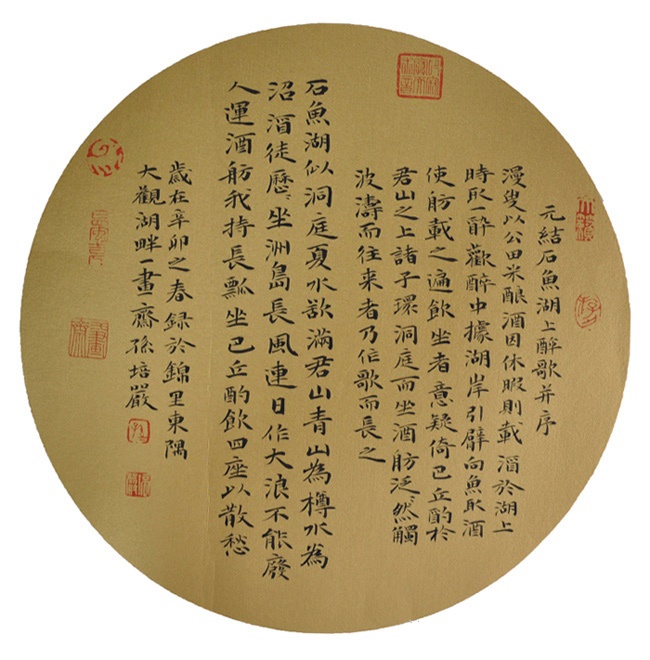 元結石魚湖上醉歌并序
漫叟以公田米釀酒因休暇則載酒於湖上
時取一醉歡醉中據湖岸引臂向魚取酒
使舫載之遍飲坐者意疑倚巴丘酌於
君山之上諸子環洞庭而坐酒舫泛然觸
波濤而往来者乃信歌而長之
石魚湖似洞庭夏水欲滿君山青山為樽水為
沼酒徒歷〻坐洲島長風連日作大浪不能廢
人運酒舫我持長瓢坐巴丘酌飲四座以散愁
歲在辛卯之春録於錦里東隅
大觀湖畔一畫齋孫培嚴